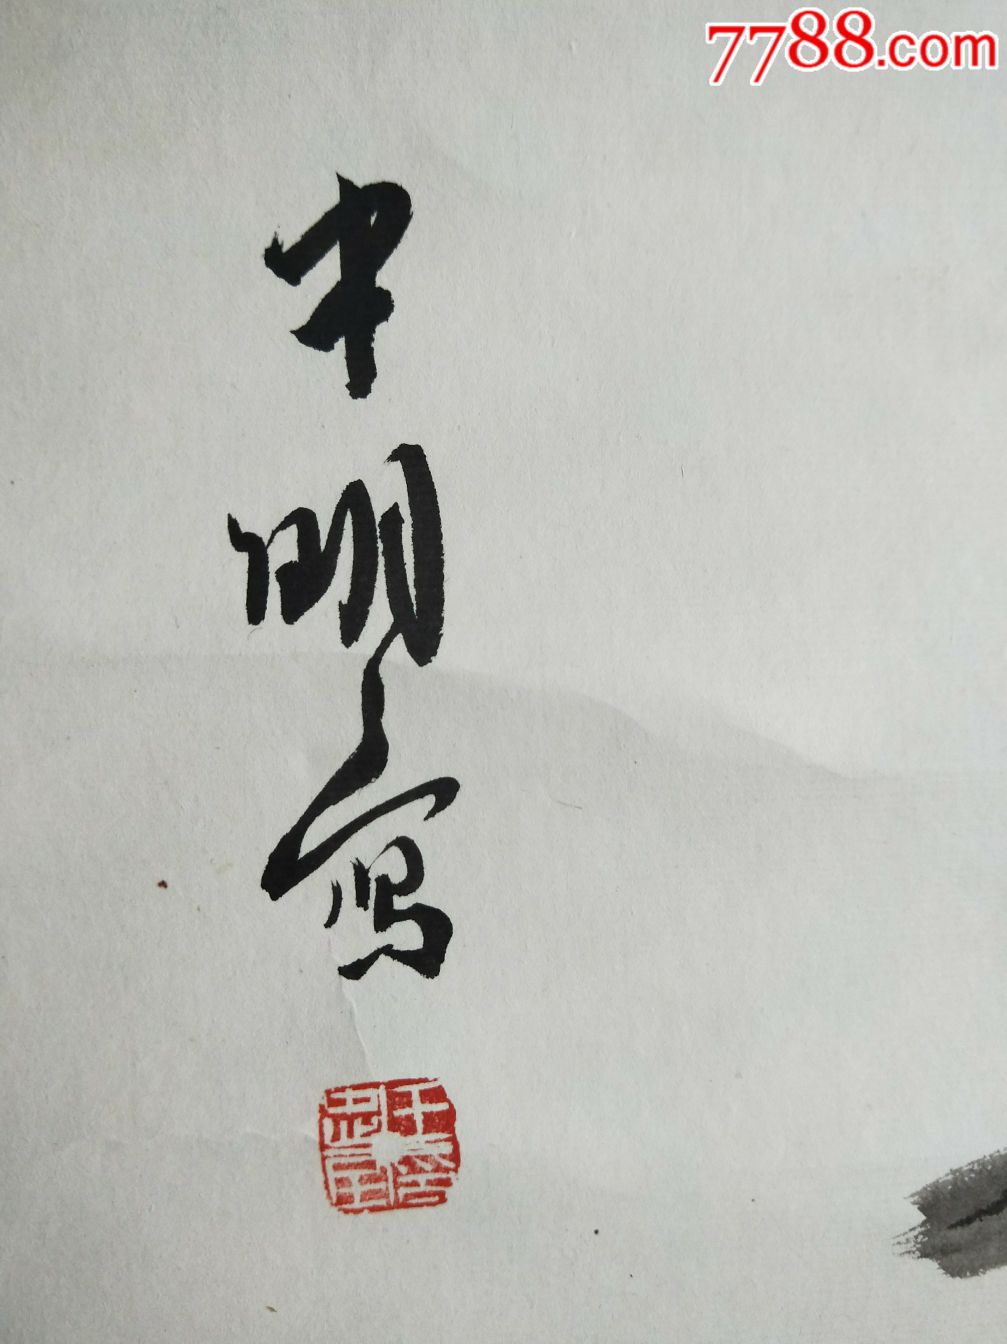 7788.com
中明写